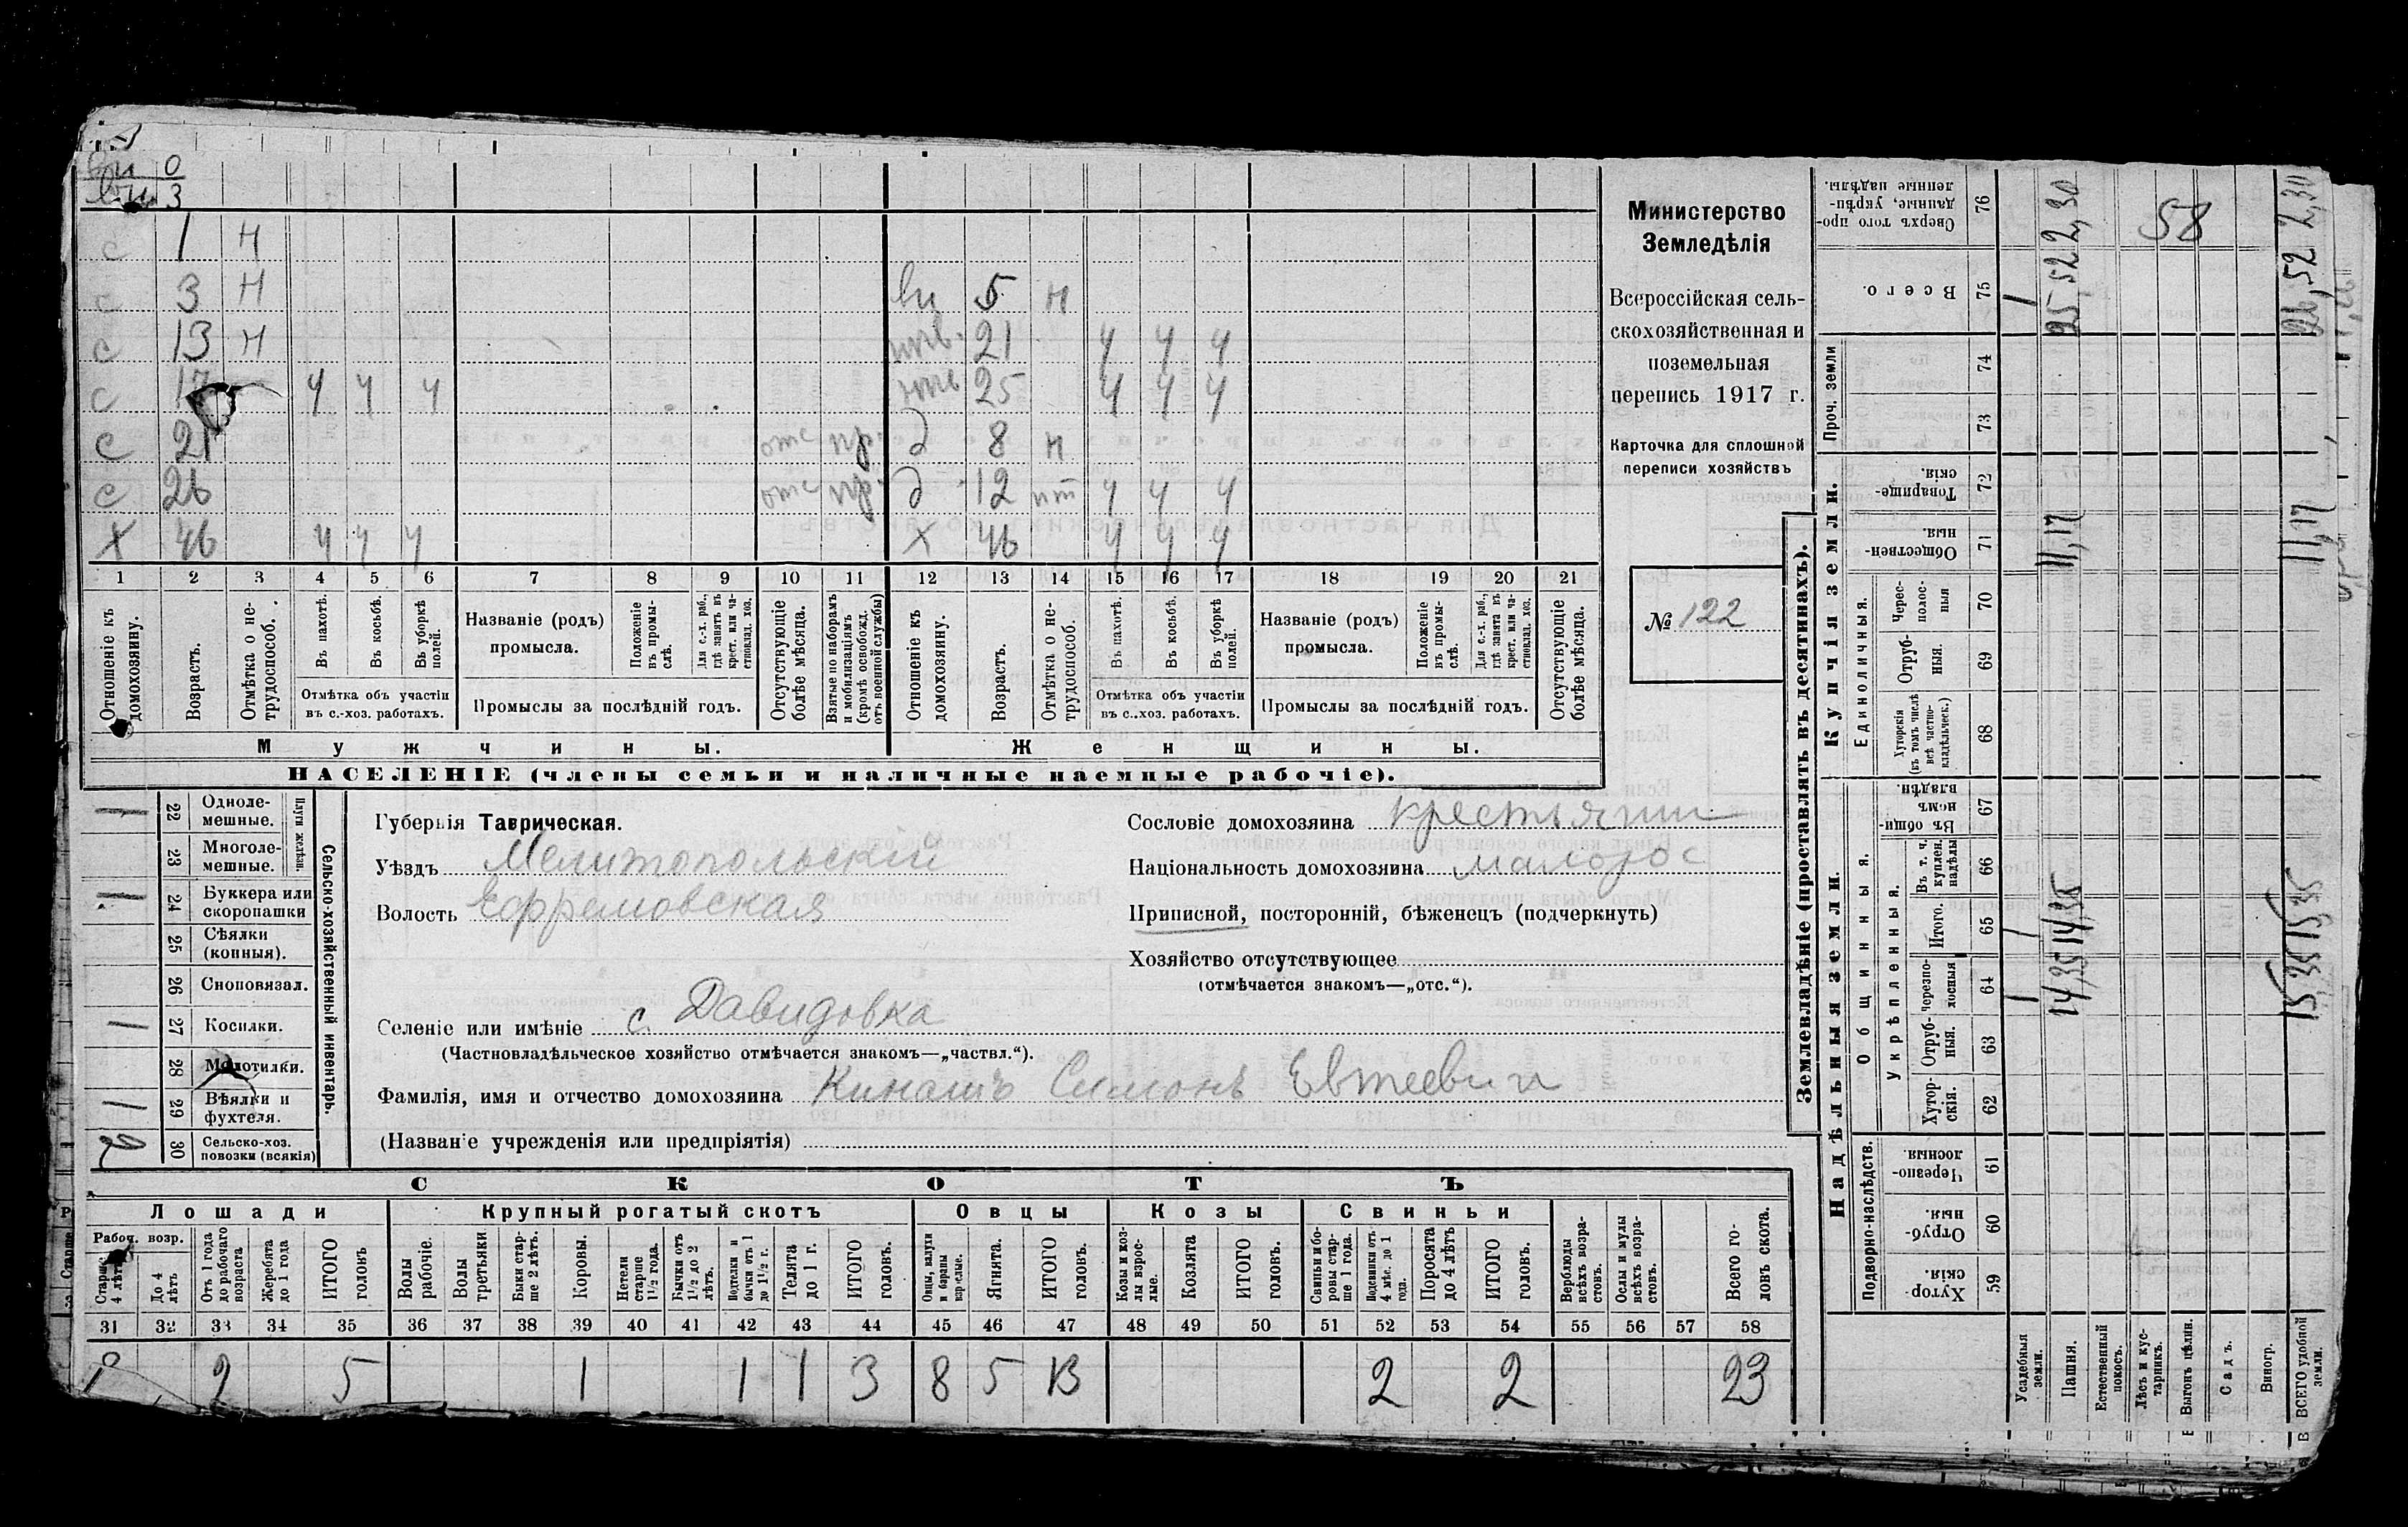 вн 0
вн 3
с 1 н
с 3 н вн 5 н
с 13 н нев. 21 ч ч ч
с 17 ч ч ч нев 25 ч ч ч
с 21 отс пр. д 8 н
с 26 отс пр. д 12 пт ч ч ч
х 46 ч ч ч х 46 ч ч ч
1 2 3 4 5 6 7 8 9 10 11 12 13 14 15 16 17 18 19 20 21
Отношеніе къ домохозяину.
Возрастъ.
Отмѣтка о не-трудоспособ.
Въ пахотѣ.
Въ косьбѣ.
Въ уборкѣ полей.
Отмѣтка объ участіи
въ с.-хоз. работахъ.
Названіе (родъ)
промысла.
Положеніе въ промы-слѣ.
Для с.-х. раб., гдѣ занятъ въ крест. или ча-стновлад. хоз.
Промыслы за послѣдній годъ.
Отсутствующіе болѣе мѣсяца.
Взятые по наборамъ и мобилизаціямъ (кромѣ освобожд. отъ военной службы)
Отношеніе къ домохозяину.
Возрастъ.
Отмѣтка о не-трудоспособ.
Въ пахотѣ.
Въ косьбѣ.
Въ уборкѣ полей.
Отмѣтка объ участіи
въ с.-хоз. работахъ.
Названіе (родъ)
промысла.
Положеніе въ промы-слѣ.
Для с.-х. раб., гдѣ занята въ крест. или ча-стновлад. хоз.
Промыслы за послѣдній годъ.
Отсутствующіе болѣе мѣсяца.
Мужчины. Женщины.
НАСЕЛЕНІЕ (члены семьи и наличные наемные рабочіе).
Министерство
Земледѣлія
Всероссійская сель-
скохозяйственная и
поземельная
перепись 1917 г.
Карточка для сплошной
переписи хозяйствъ
№ 122
1 22 Одноле-мешные.
23 Многоле-мешные.
Плуги желѣзн.
1 24 Буккера или скоропашки
25 Сѣялки (конныя).
26 Сноповязал.
1 27 Косилки.
28 Молотилки.
1 29 Вѣялки и фухтеля.
2 30 Сельско-хоз. повозки (всякія)
Сельско-хозяйственный инвентарь.
Губернія Таврическая.
Уѣздъ Мелитопольскій
Волость Ефремовская
Сословіе домохозяина крестьянин
Національность домохозяина малорос
Приписной, посторонній, бѣженецъ (подчеркнуть)
Хозяйство отсутствующее
(отмѣчается знакомъ—„отс.“).
Селеніе или имѣніе с. Давидовка
(Частновладѣльческое хозяйство отмѣчается знакомъ—„частвл.“).
Фамилія, имя и отчество домохозяина Кинашъ Симонъ Евтеевич
(Названіе учрежденія или предпріятія)
СКОТЪ
Лошади Крупный рогатый скотъ Овцы Козы Свиньи
Рабоч. возр.
Старше 4 лѣтъ
До 4 лѣтъ
Отъ 1 года до рабочаго возраста
Жеребята до 1 года
ИТОГО головъ
Волы рабочіе.
Волы третьяки.
Быки стар-ше 2 лѣтъ.
Коровы.
Нетели старше 1½ года.
Бычки отъ 1½ до 2 лѣтъ.
Подтелки и бычки отъ 1 до 1½ г.
Телята до 1 г.
ИТОГО головъ.
Овцы, валухи и бараны взрослые.
Ягнята.
ИТОГО головъ.
Козы и коз-лы взрос-лые.
Козлята
ИТОГО головъ.
Свиньи и бо-ровы стар-ше 1 года.
Подсвинки отъ 4 мѣс. до 1 года.
Поросята до 4 лѣтъ
ИТОГО головъ.
Верблюды всѣхъ возра-стовъ.
Ослы и мулы всѣхъ возра-стовъ.
Всего го-ловъ скота.
31 32 33 34 35 36 37 38 39 40 41 42 43 44 45 46 47 48 49 50 51 52 53 54 55 56 57 58
2 5 1 1 1 3 8 5 13 2 2 23
Землевладѣніе (проставлять въ десятинахъ).
Купчія земли.
Надѣльныя земли.
Сверхъ того про-данные, укрѣп-ленные надѣлы. 76
Всего. 75
Проч. земли 74 73
Товарище-скія. 72
Обществен-ныя. 71
Единоличныя.
Черес-полос-ныя 70
Отруб-ныя. 69
Хуторскія (въ томъ числѣ всѣ частно-владѣльческ.) 68
Въ общин-номъ владѣн. 67
Общинныя.
Укрѣпленныя.
Въ т. ч. куплен. надѣлы 66
Итого. 65
Черезпо-лосныя 64
Отруб-ныя. 63
Хутор-скія. 62
Подворно-наслѣдств.
Черезпо-лосныя 61
Отруб-ныя. 60
Хутор-скія. 59
Усадебныя земли. 1 1 1
Пашня. 14,35 14,35 11,17 25,52 2,30
Естественный покосъ.
Лѣсъ и кус-тарникъ. 58
Выгонъ цѣлин.
Садъ.
Виногр.
ВСЕГО удобной земли. 15,35 15,35 11,17 26,52 2,30